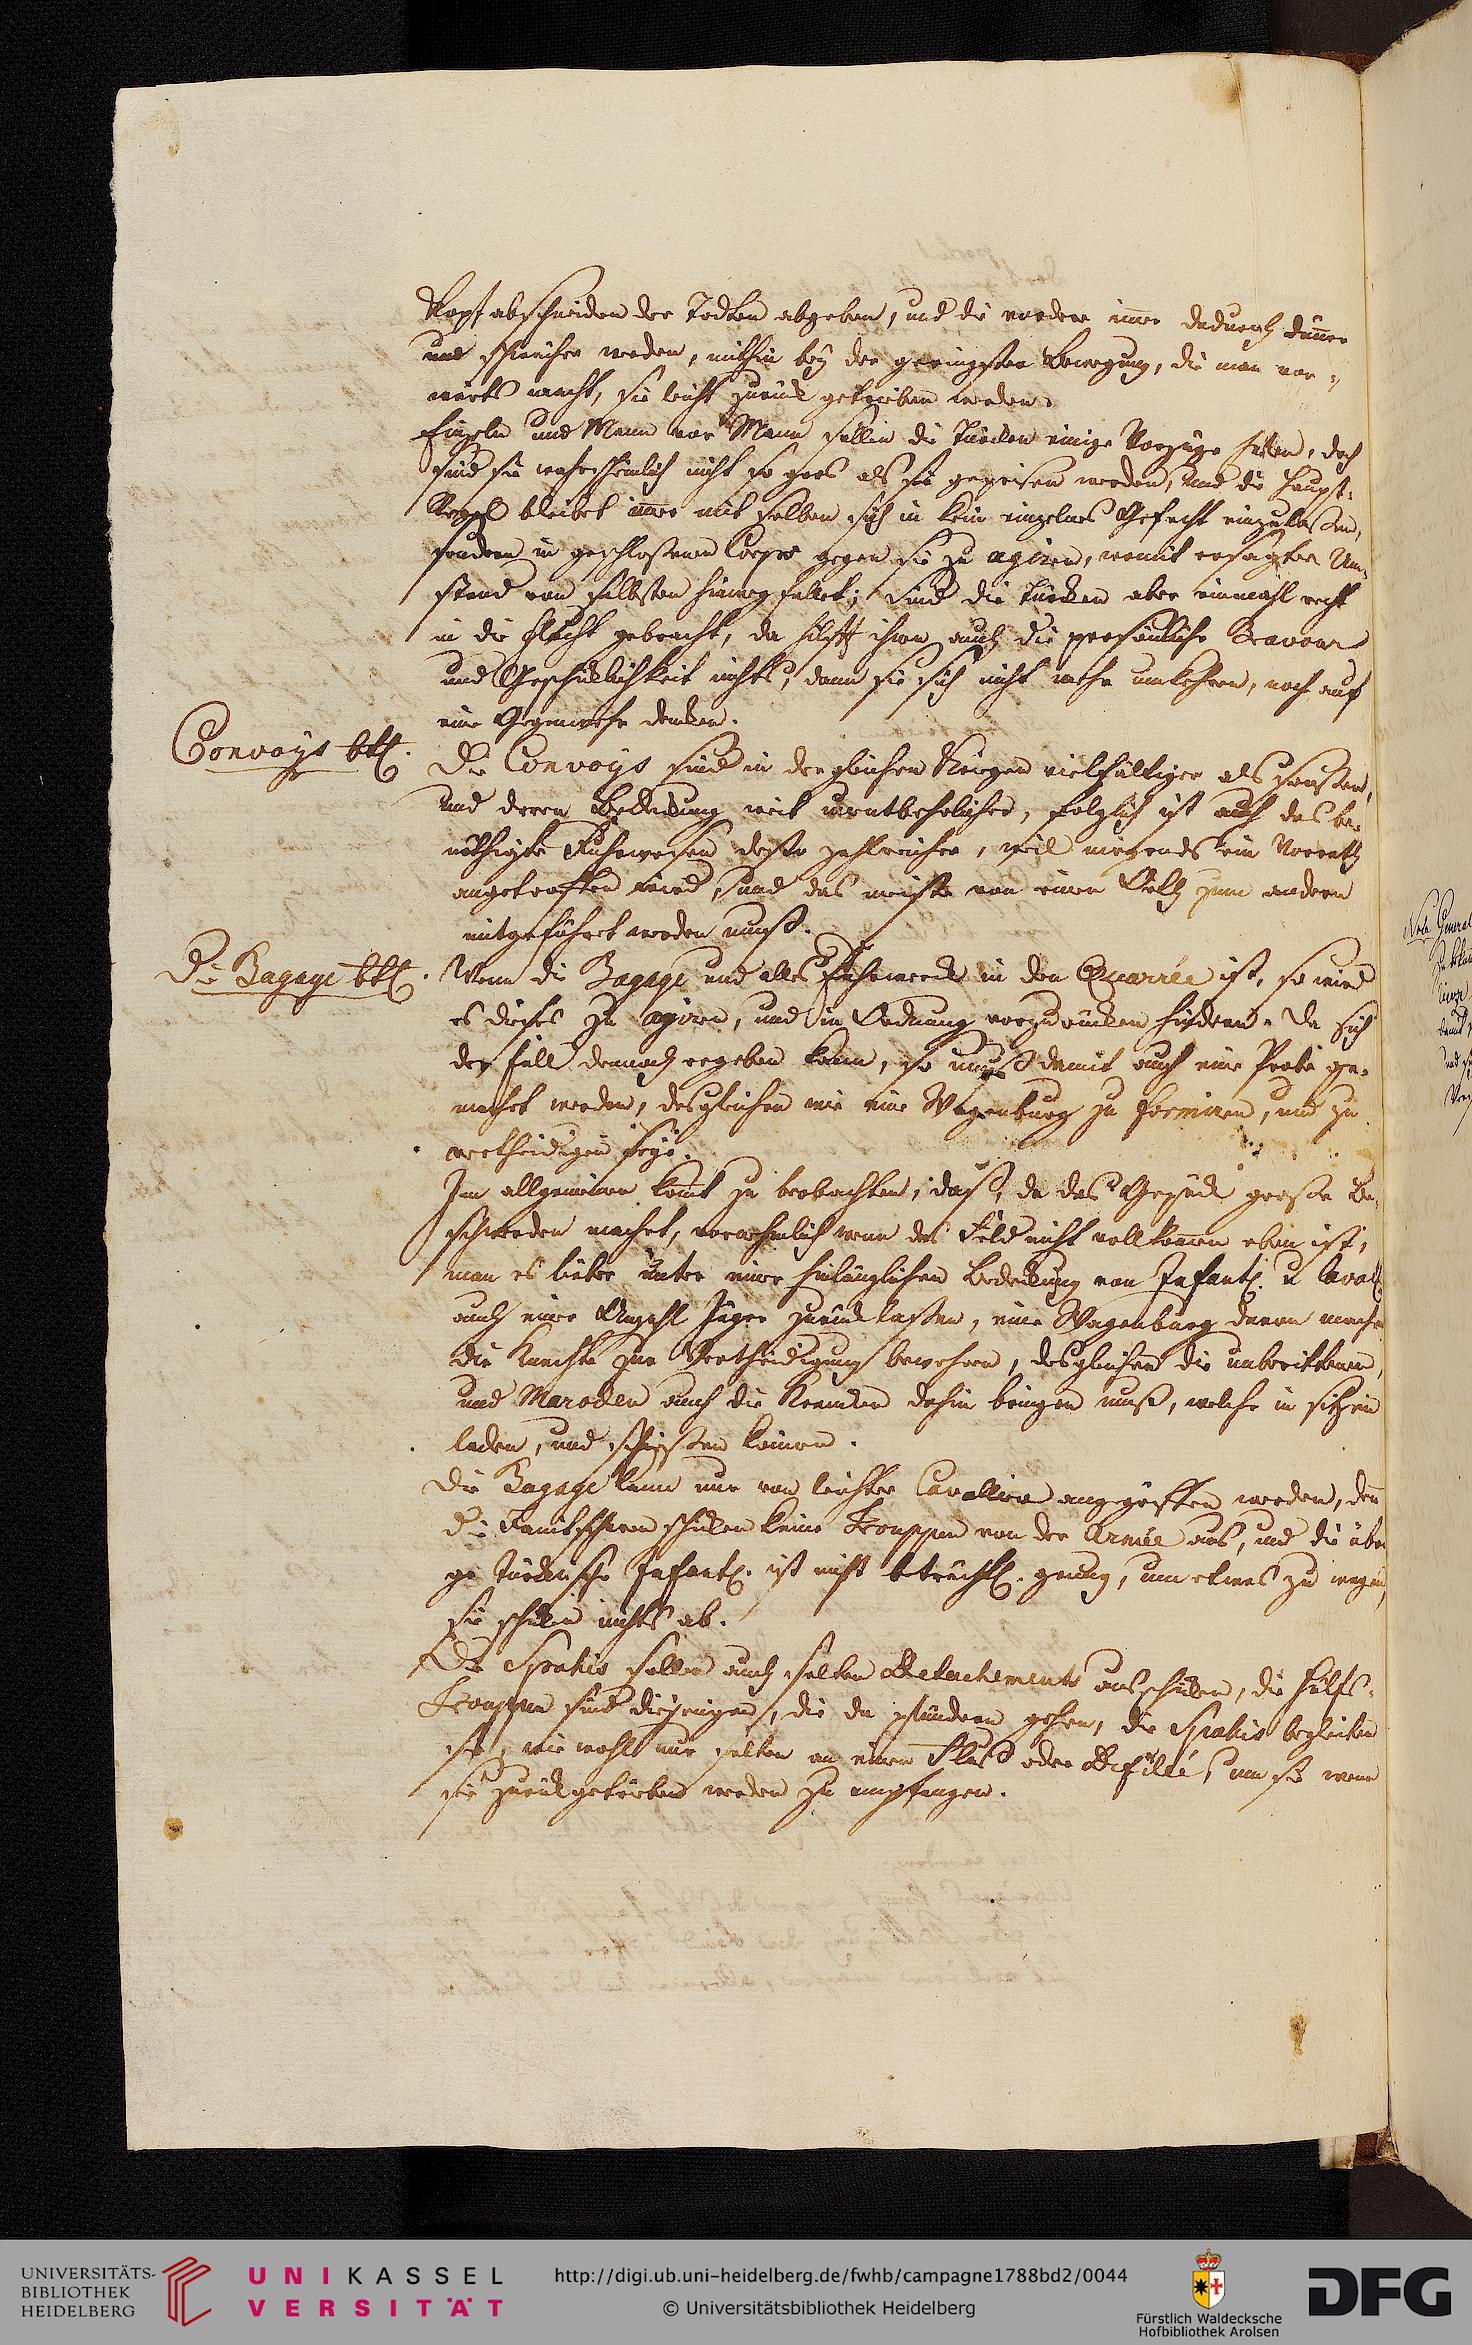 Kopf abschneiden der Todten abgeben, und die vordere immer dadurch dünner
und schwächer werden, mithin bey der geringsten Bewegung, die man vor-
wärts macht, sie leicht zurück getrieben werden.
Einzeln und Mann vor Mann sollen die Türcken einige Vorzüge haben, doch
sind sie wahrscheinlich nicht so gros als sie gepriesen werden, und die Haupt-
Regel bleibet immer mit selben sich in kein einzelnes Gefecht einzulaßen,
sondern in geschloßenen Corps gegen sie zu agiren, womit ersagter Um-
stand von selbsten hinweg fallet; Sind die Türcken aber einmahl recht
in die Flucht gebracht, da hilfft ihnen auch die persönliche Bravour
und Geschicklichkeit nichts, dann sie sich nicht mehr umkehren, noch auf
eine Gegenwehr dencken.
Convoys btl.
Die Convoys sind in dergleichen Kriegen vielfältiger als sonsten,
und deren Bedeckung weit unentbehrlicher, folglich ist auch das be-
nöthigte Fuhrwesen desto zahlreicher, weil nirgends ein Vorrath
angetroffen wird, und das meiste von einem Orth zum andern
mitgeführt werden muß.
Die Bagage btl.
Wenn die Bagage und alles Fuhrwerck in den Quarrée ist, so wird
es dieses zu agiren, und in Ordnung vorzurücken hindern. Da sich
der Fall dennoch ergeben kann, so muß damit auch eine Probe ge-
machet werden, desgleichen wie eine Wagenburg zu formiren, und zu
vertheidigen seye.
Im allgemeinen kommt zu beobachten, daß, da das Gepäck große Be-
schwerden machet, vornehmlich wenn das Feld nicht vollkommen eben ist,
man es lieber unter einer hinlänglichen Bedeckung von Infant. u Caval.
auch einer Anzahl Jäger zurück laßen, eine Wagenburg davon machen
die Knechte zur Vertheidigung bewehren, desgleichen die unberittenen,
und Maroden auch die Krancken dahin bringen muß, welche in sitzen
laden, und schießen können.
Die Bagage kann nur von leichter Cavallerie angegriffen werden, denn
die Janitscharen schicken keine Trouppen von der Armée aus, und die übri
ge türckische Infant. ist nicht beträchtl. genug, um etwas zu wagen,
sie schicken nichts ab.
Die Spahis sollen auch selten Detachements ausschicken, die Hülfs-
Trouppen sind diejenigen, die da plündern gehen, die Spahis begleiten
sie, wiewohl nur selten an einen Fluß oder Defilée, um sie wenn
sie zurückgetrieben werden zu empfangen.
Nota General
UNIVERSITÄTS-
BIBLIOTHEK
HEIDELBERG
UNIKASSEL
VERSITÄT
http://digi.ub.uni-heidelberg.de/fwhb/campagne1788bd2/0044
© Universitätsbibliothek Heidelberg
Fürstlich Waldecksche
Hofbibliothek Arolsen
DFG